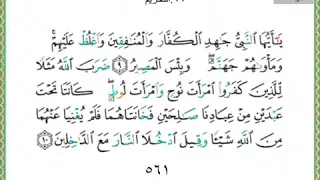 يَٰٓأَيُّهَا ٱلنَّبِيُّ جَٰهِدِ ٱلۡكُفَّارَ وَٱلۡمُنَٰفِقِينَ وَٱغۡلُظۡ عَلَيۡهِمۡۚ
وَمَأۡوَىٰهُمۡ جَهَنَّمُۖ وَبِئۡسَ ٱلۡمَصِيرُ ٩ ضَرَبَ ٱللَّهُ مَثَلٗا
لِّلَّذِينَ كَفَرُواْ ٱمۡرَأَتَ نُوحٖ وَٱمۡرَأَتَ لُوطٖۖ كَانَتَا تَحۡتَ
عَبۡدَيۡنِ مِنۡ عِبَادِنَا صَٰلِحَيۡنِ فَخَانَتَاهُمَا فَلَمۡ يُغۡنِيَا عَنۡهُمَا
مِنَ ٱللَّهِ شَيۡـٔٗا وَقِيلَ ٱدۡخُلَا ٱلنَّارَ مَعَ ٱلدَّٰخِلِينَ ١٠
٥٦١